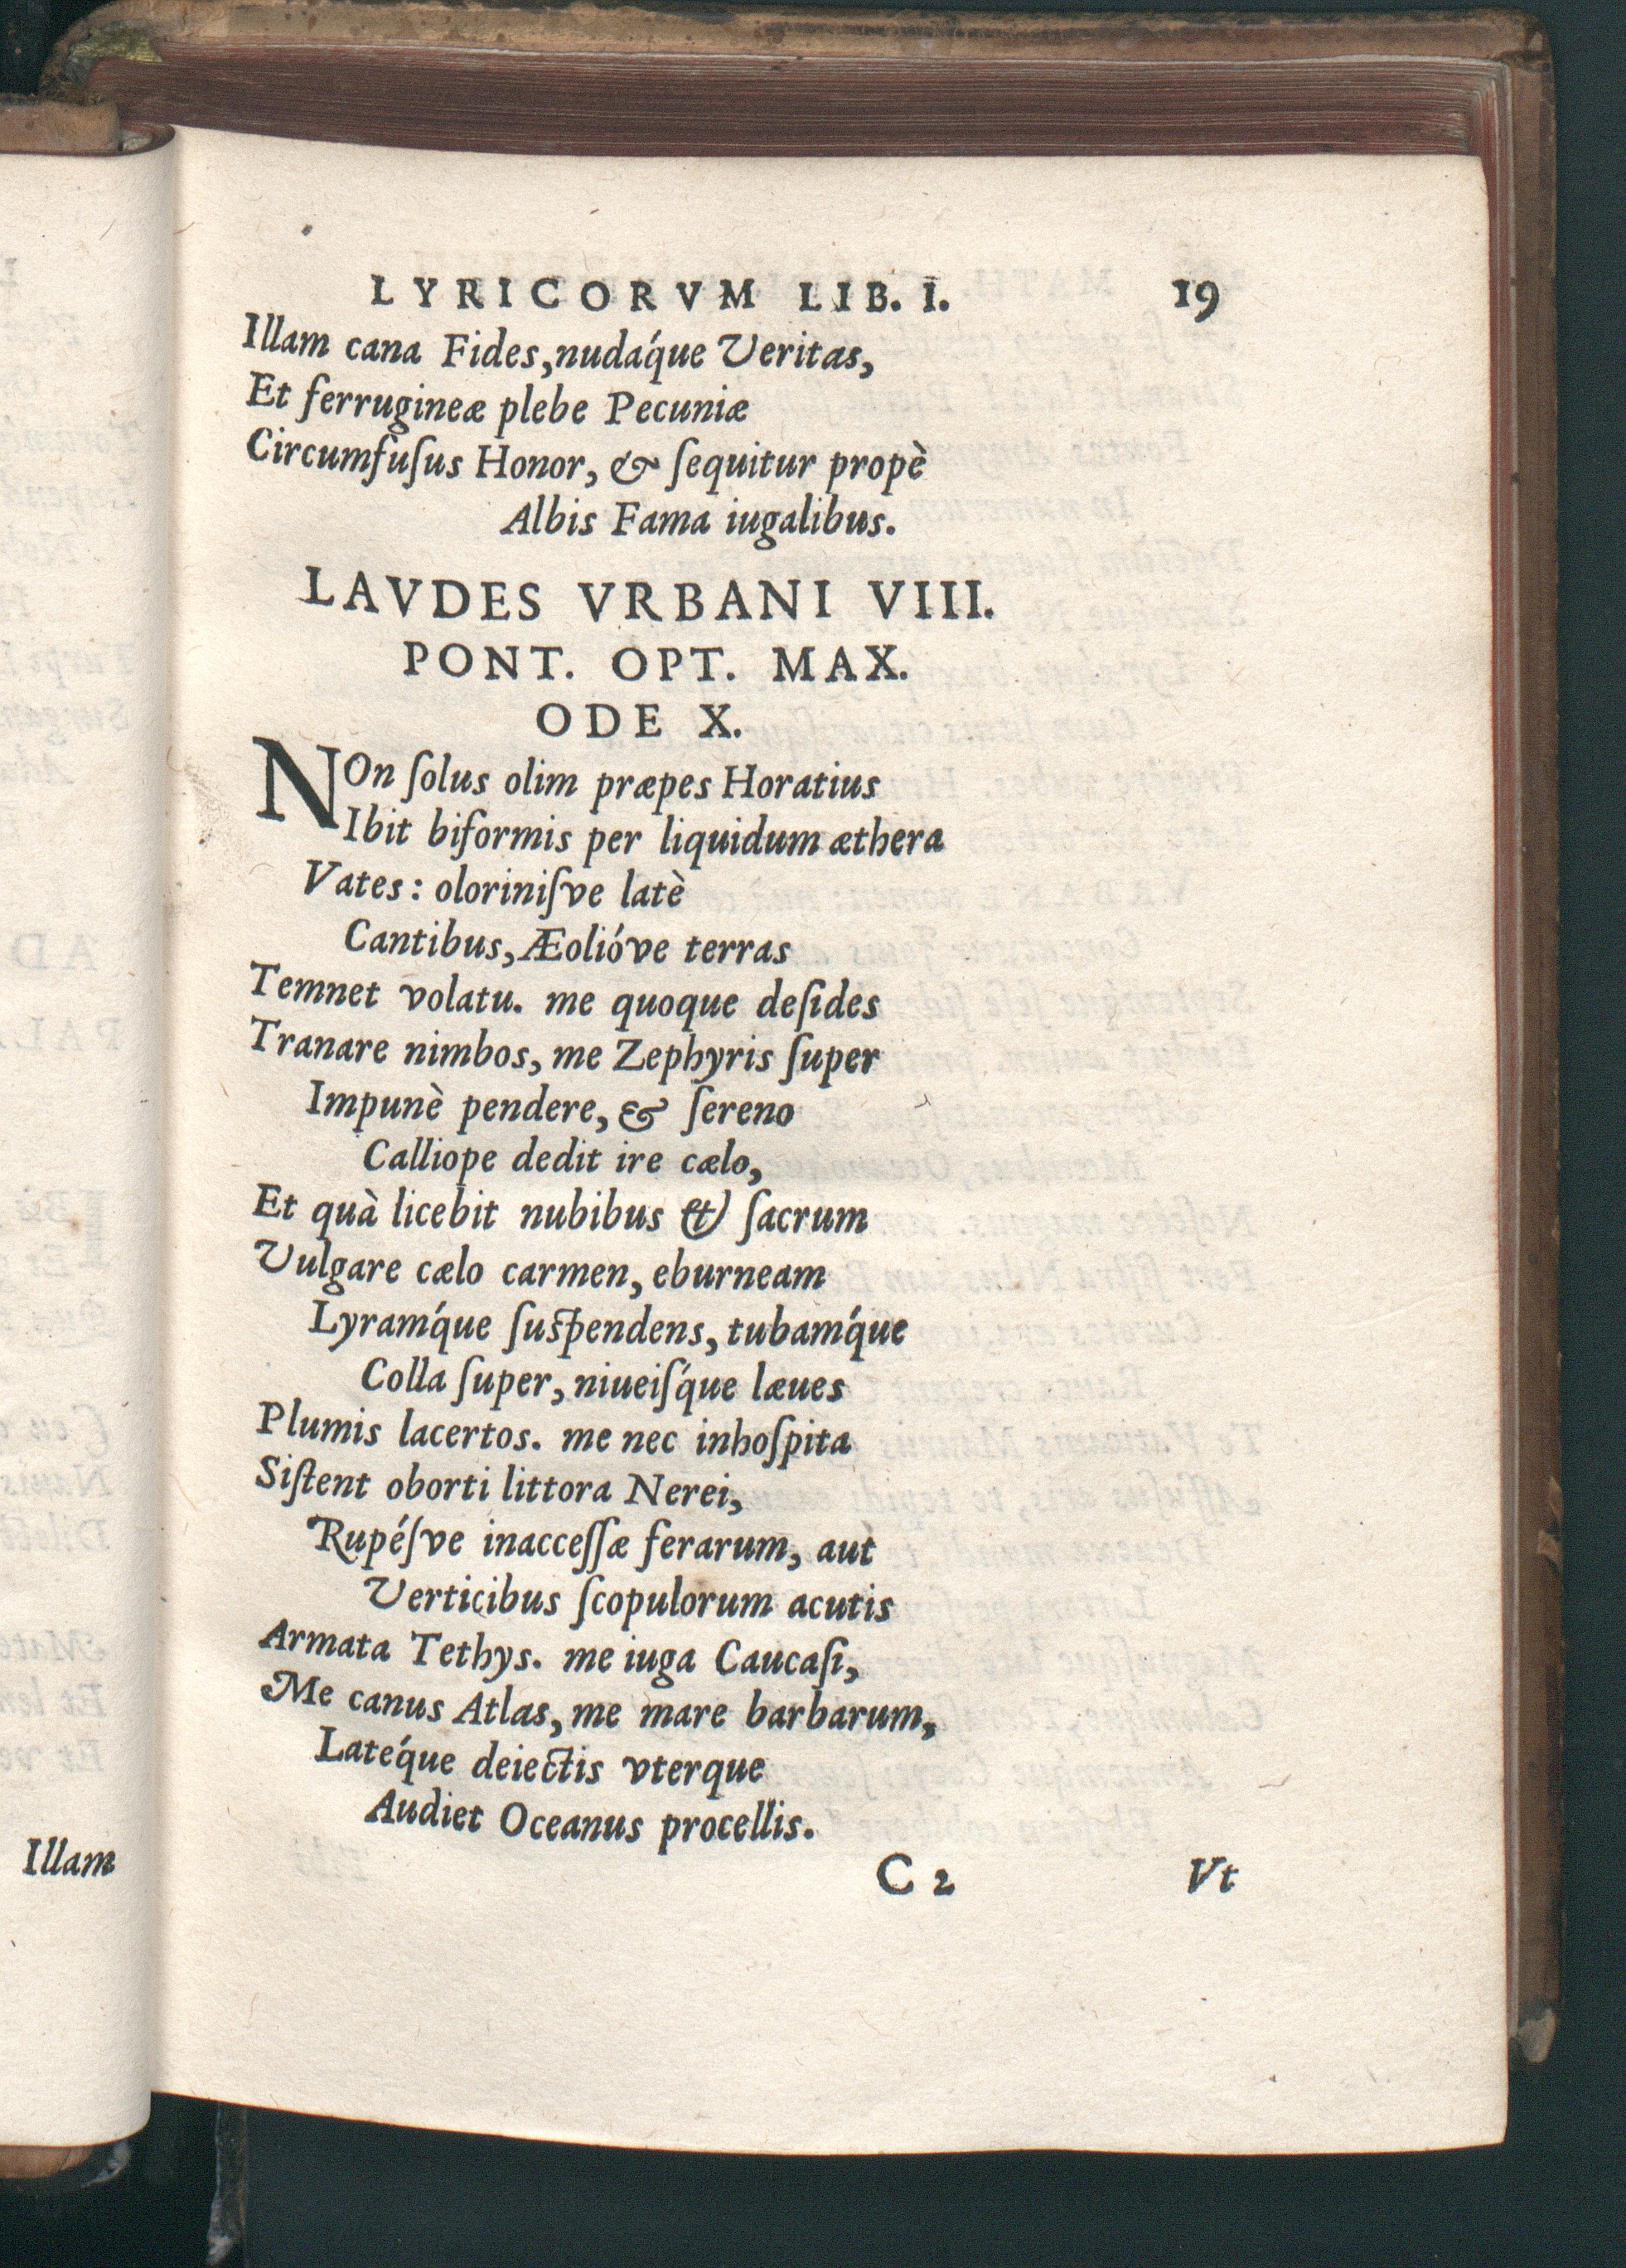 LYRICORVM LIB. I. 19
Illam cana Fides, nudáque Veritas,
Et ferrugineæ plebe Pecuniæ
Circumfuſus Honor, & ſequitur propè
Albis Fama iugalibus.
LAVDES VRBANI VIII.
PONT. OPT. MAX.
ODE X.
NOn ſolus olim præpes Horatius
Ibit biformis per liquidum æthera
Vates: oloriniſve latè
Cantibus, Æolióve terras
Temnet volatu. me quoque deſides
Tranare nimbos, me Zephyris ſuper
Impunè pendere, & ſereno
Calliope dedit ire cælo,
Et quà licebit nubibus & ſacrum
Vulgare cælo carmen, eburneam
Lyramq́ue ſuſpendens, tubamq́ue
Colla ſuper, niueiſq́ue læues
Plumis lacertos. me nec inhoſpita
Siſtent oborti littora Nerei,
Rupéſve inacceſſæ ferarum, aut
Verticibus ſcopulorum acutis
Armata Tethys. me iuga Caucaſi,
Me canus Atlas, me mare barbarum,
Latéque deiectis vterque
Audiet Oceanus procellis.
C 2 Vt
Illam